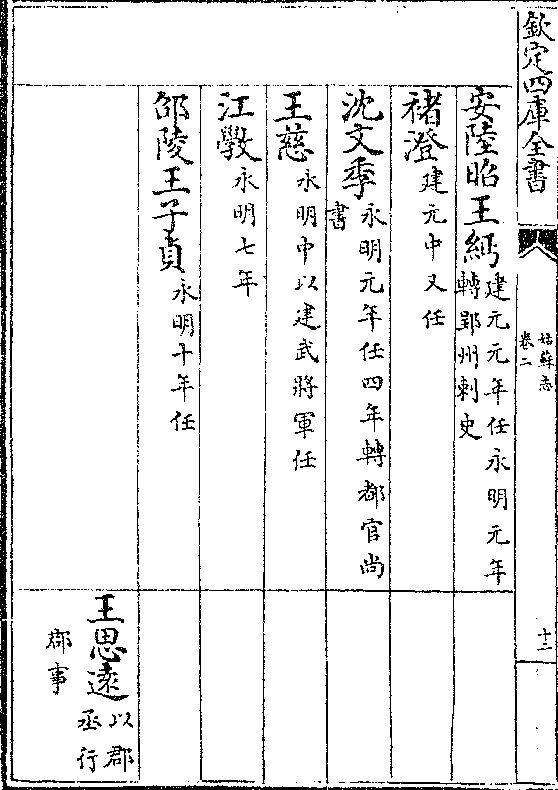 欽定四庫全書
姑蘇志
卷二
十二
安陸昭王緬建元元年任永明元年
轉郢州刺史
褚澄建元中又任
沈文季永明元年任四年轉都官尚
書
王慈永明中以建武將軍任
江斆永明七年
邵陵王子貞永明十年任
王思遠以郡
丞行
郡事